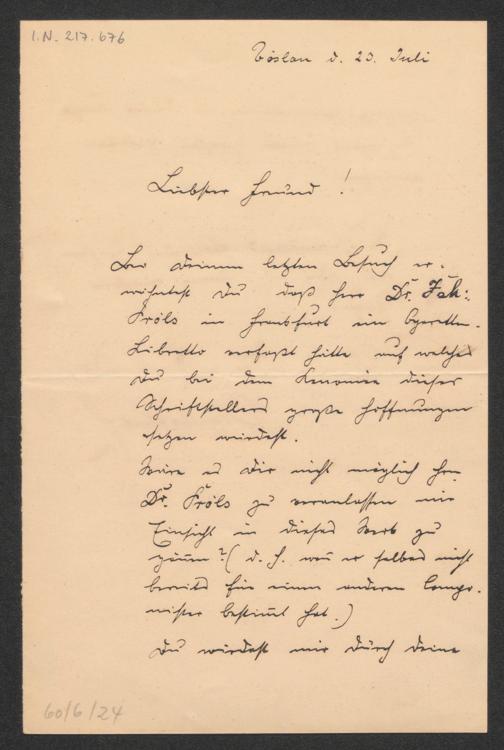 I.N. 217.676
Vöslau d. 23. Juli
Liebster Freund!
Bei Deinem letzten Besuch er-
wähntest Du daß Herr Dr. Joh:
Pröls in Frankfurt ein Operetten-
Libretto verfaßt hätte auf welches
Du bei dem Renomée dieses
Schriftstellers große Hoffnungen
setzen würdest.
Wäre es Dir nicht möglich Hrn
Dr. Pröls zu veranlassen mir
Einsicht in dieses Werk zu
gönnen? (d. h. wenn er selbes nicht
bereits für einen anderen Compo-
nisten bestimt hat.)
Du würdest mir durch Deine
60/6/24